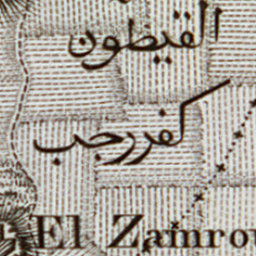 القيظون
كفررجب
El Zamro